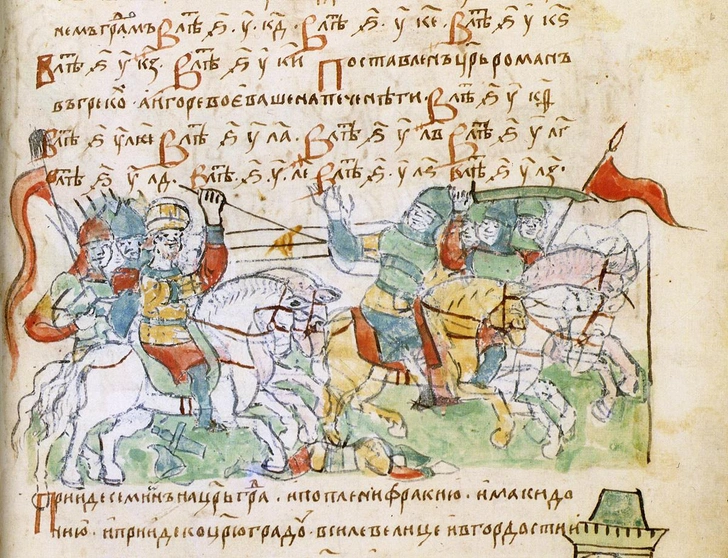 немъ грамъ В лѣт҃ ѕ҃ у҃ кд В лѣт҃ ѕ҃ у҃ ке В лѣт҃ ѕ҃ у҃ кѕ
В лѣт҃ ѕ҃ у҃ кз В лѣт҃ ѕ҃ у҃ ки Поставленъ цр҃ь романъ
въ греко · а игоре воєваше на печенѣги · В лѣт҃ ѕ҃ у҃
В лѣт҃ ѕ҃ у҃ ла В лѣт҃ ѕ҃ у҃ лв В лѣт҃ ѕ҃ у҃ лг
В лѣт҃ ѕ҃ у҃ лд В лѣт҃ ѕ҃ у҃ ле В лѣт҃ ѕ҃ у҃ лѕ В лѣт҃ ѕ҃ у҃ лз
Прииде на цр҃ьгра · и поплени фракию · и макидо
нию · и прииде ко цр҃юградоу · в силе велице и в гордости